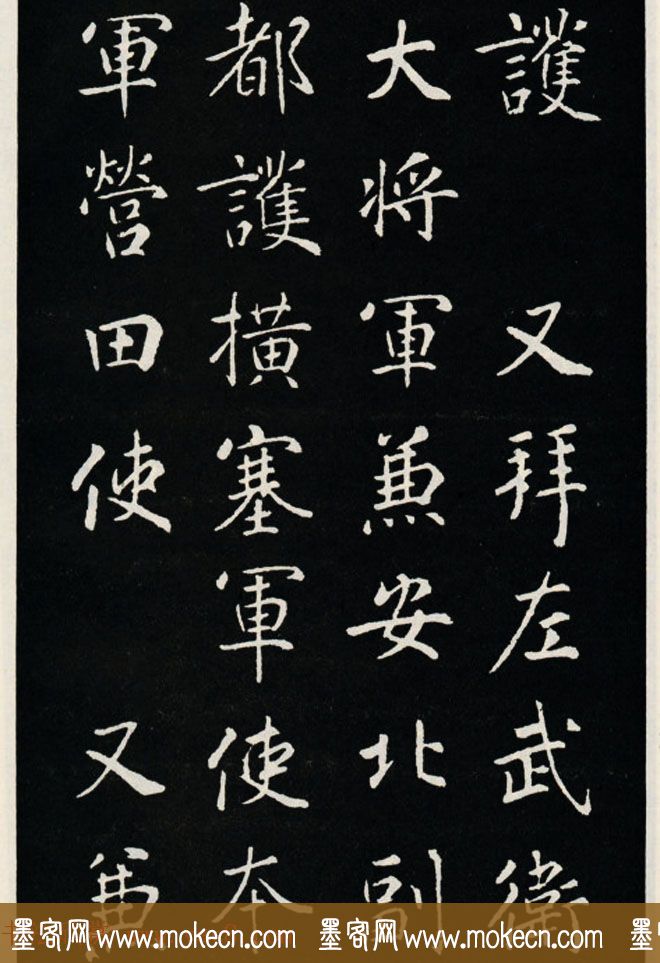 護 又拜左武衛
大將軍兼安北副
都護横塞軍使本
軍營田使 又兼
墨客网 www.mokecn.com 墨客网 www.mokecn.com 墨